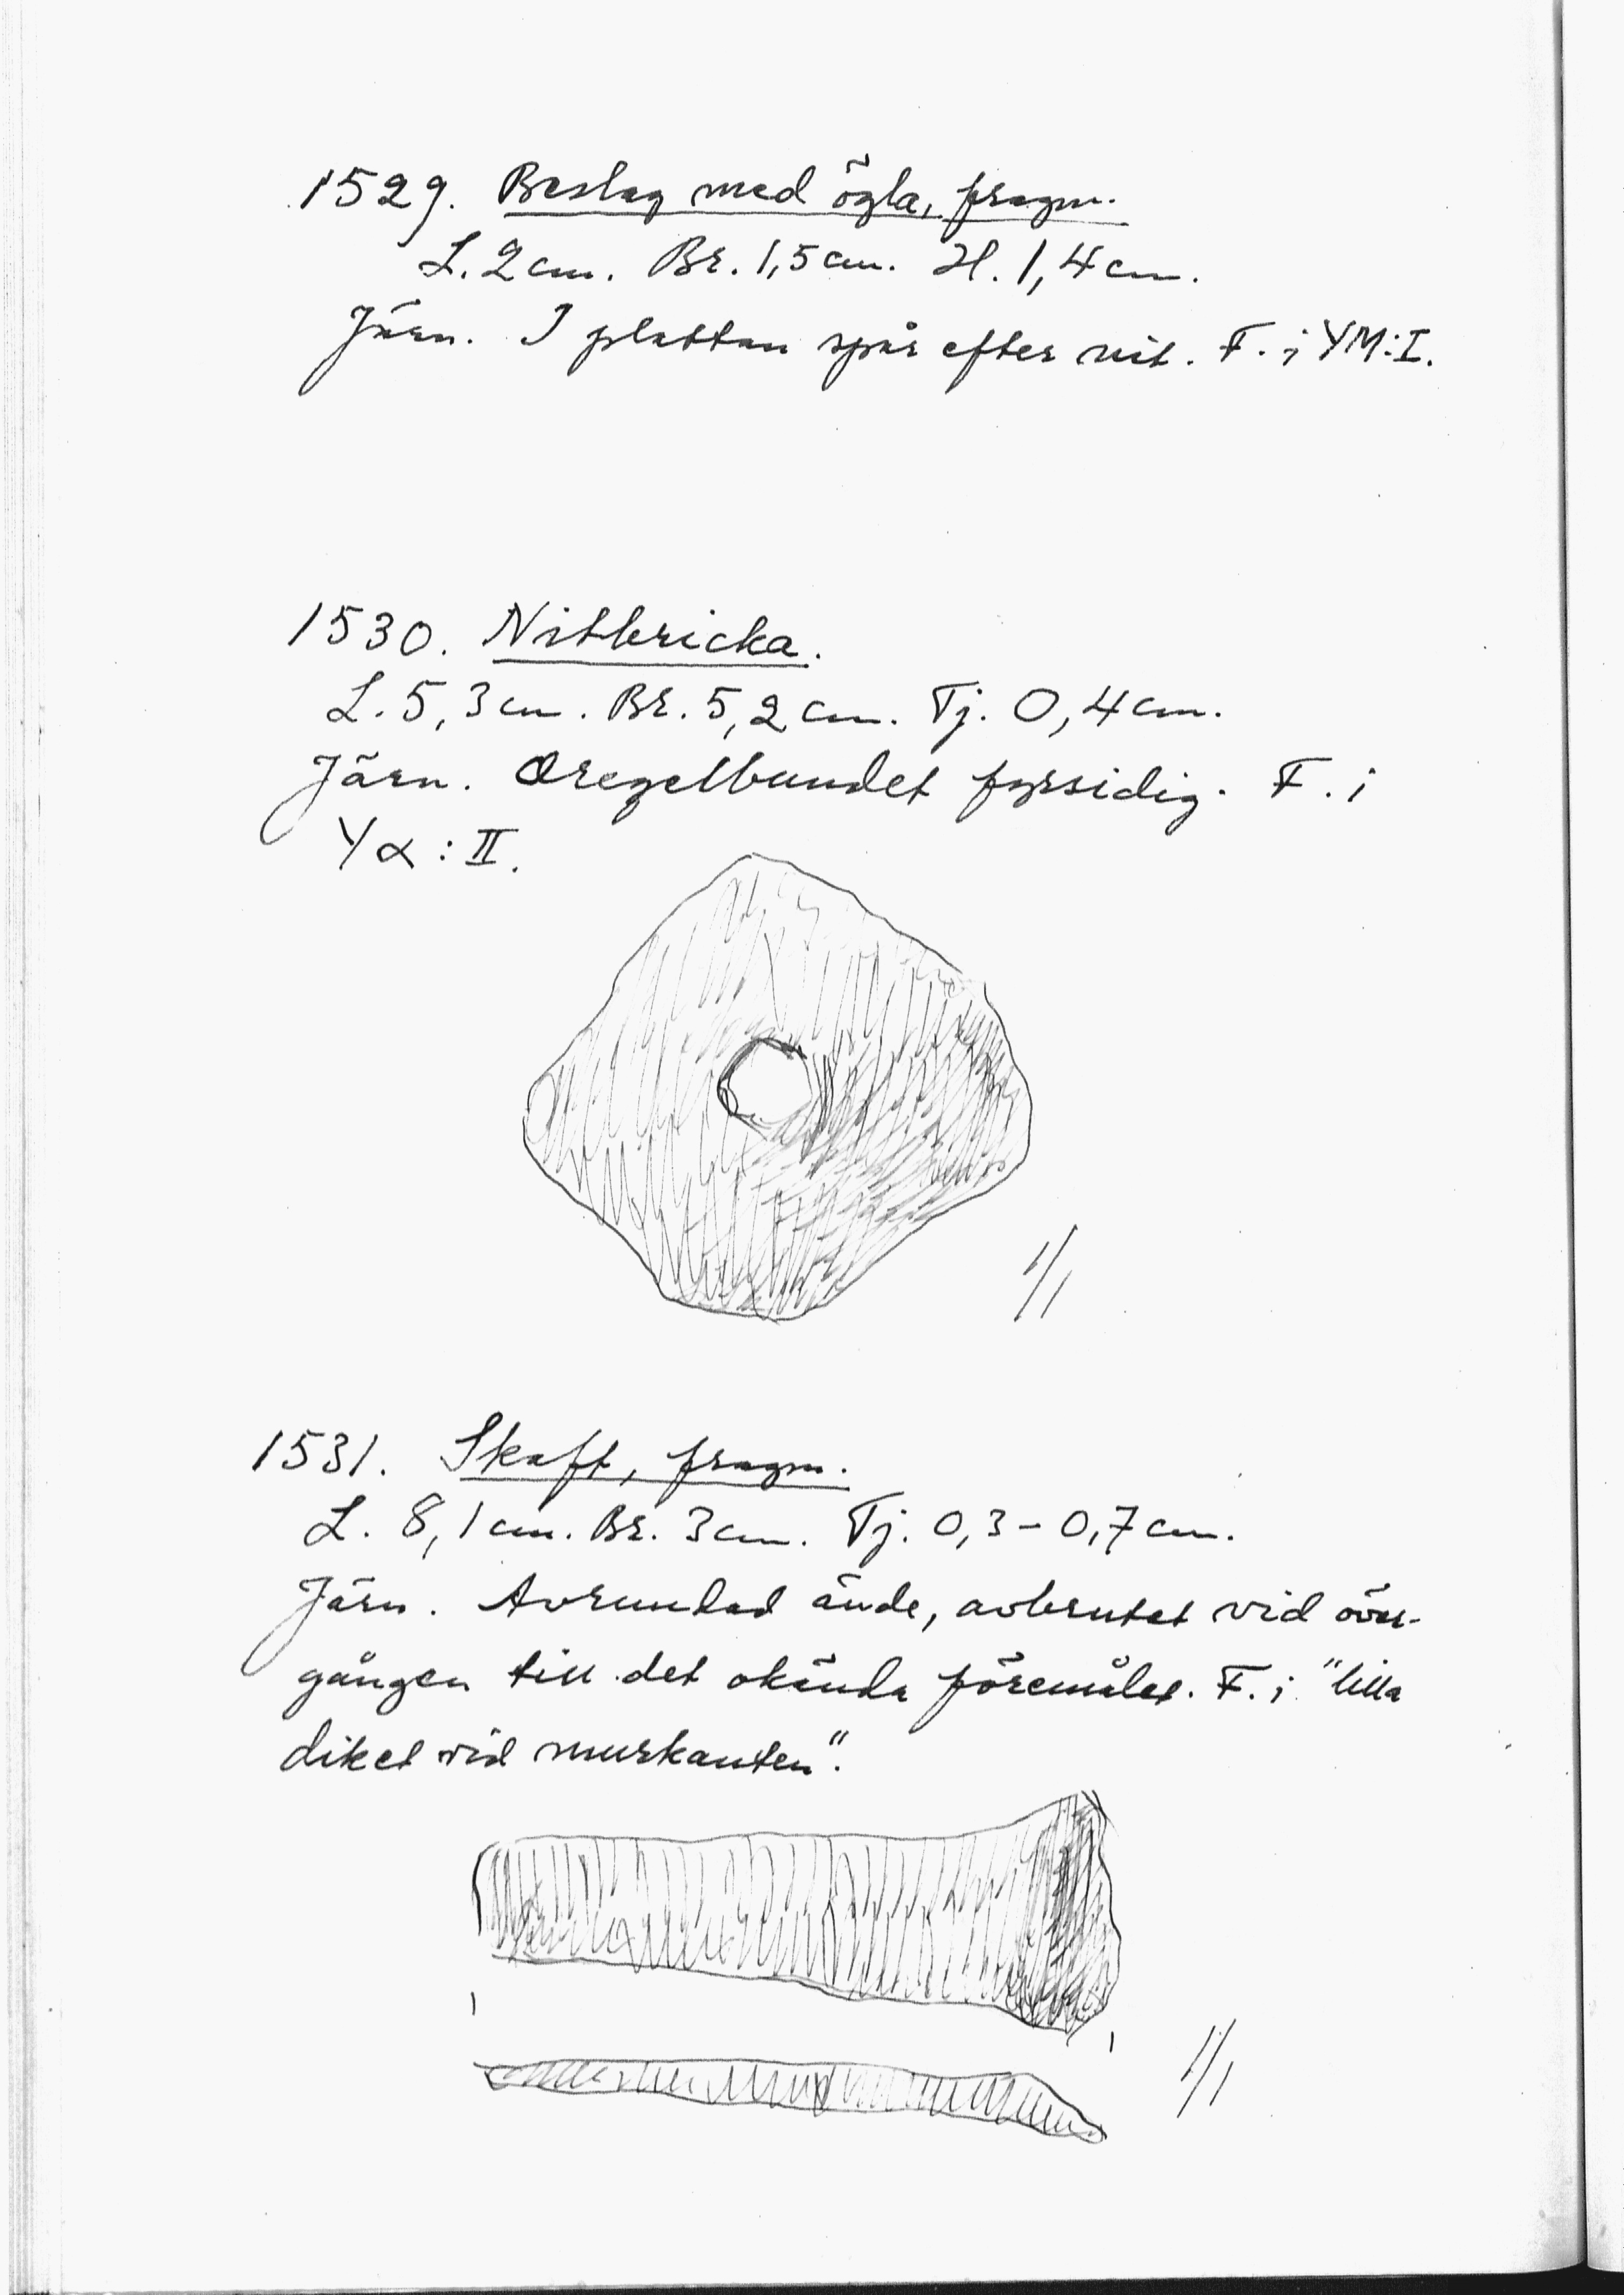 1529. Beslag med ögla, fragm.
L. 2 cm. Br. 1,5 cm. H. 1,4 cm.
Järn. I plattan spår efter nit. F. i YM:I.
1530. Nitbricka.
L. 5,3 cm. Br. 5,2 cm. Tj. 0,4 cm.
Järn. Oregelbundet fyrsidig. F. i
Yα:II.
1/1
1531. Skaft, fragm.
L. 8,1 cm. Br. 3 cm. Tj. 0,3 – 0,7 cm.
Järn. Avrundad ände, avbrutet vid över-
gången till det okända föremålet. F. i "lilla
diket vid murkanten".
1/1